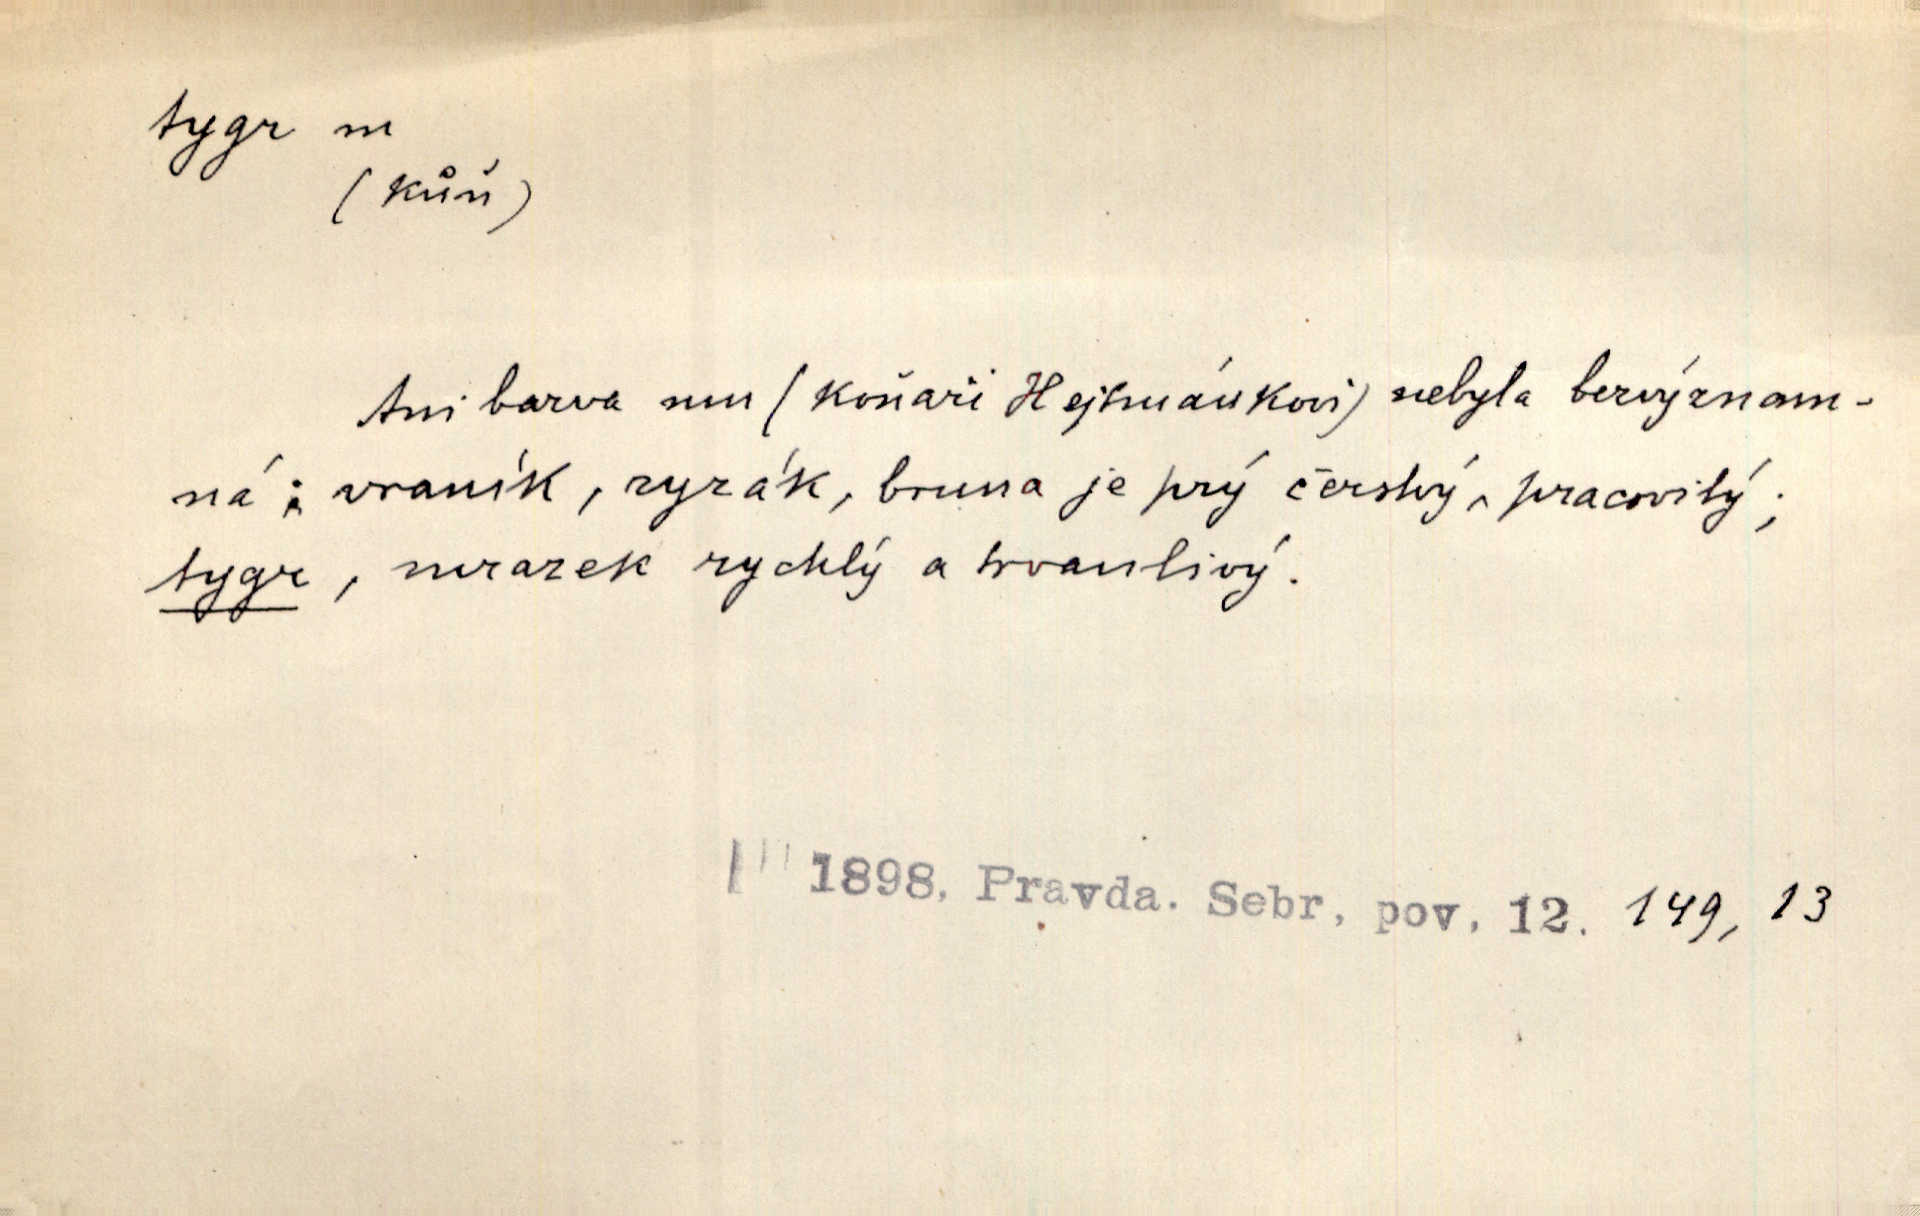 tygr m
(kůň)
Ani barva mu (koňaři Hejtmánkovi) nebyla bezvýznam-
ná: vraník, ryzák, bruna je prý čerstvý, pracovitý;
tygr, mrazek rychlý a trvanlivý.
1898, Pravda. Sebr, pov, 12. 149, 13